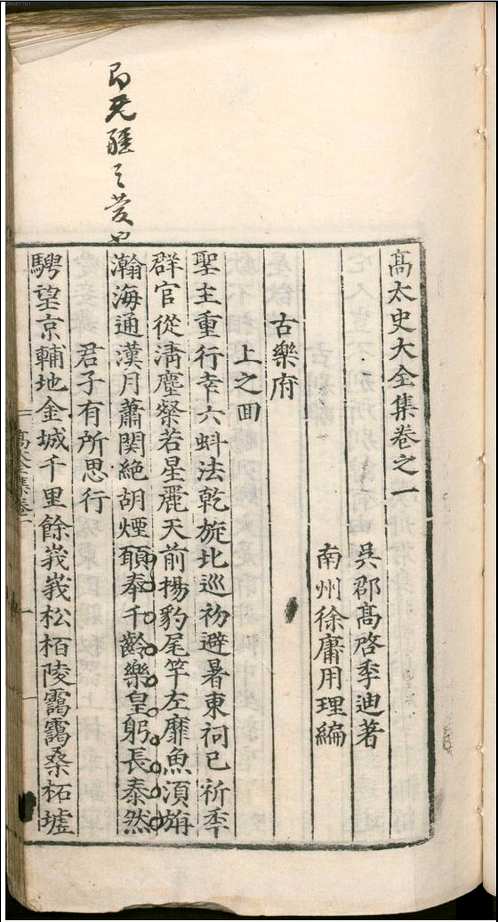 高太史大全集卷之一
吳郡高啓季迪著
南州徐庸用理編
古樂府
上之回
聖主重行幸六蚪法乾旋北巡初避暑東祠已祈年
群官從淸塵粲若星麗天前揚豹尾竿左靡魚湏旃
瀚海通漢月蕭関絶胡煙願奉千齡樂皇躬長泰然
君子有所思行
騁望京輔地金城千里餘峩峩松栢陵靄靄桑柘墟